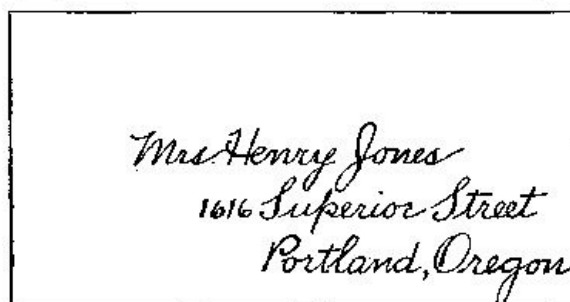 Mrs Henry Jones
1616 Superior Street
Portland, Oregon